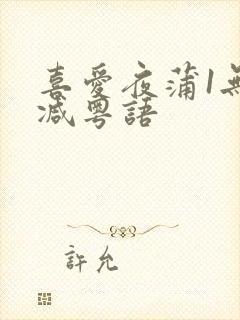 喜愛夜蒲1無
減粵語
許允